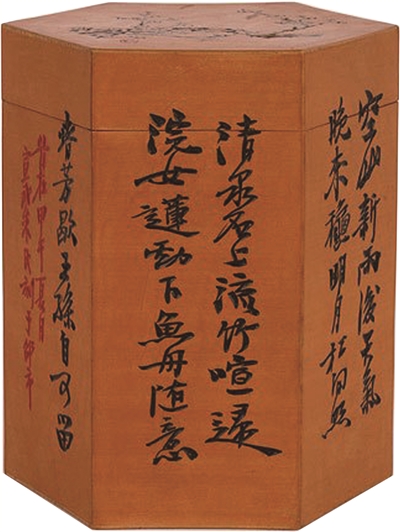 空山新雨後天氣
晚来穐明月松間照
清泉石上流竹喧歸
浣女蓮動下魚舟随意
春芳歇王孫自可留
甲午夏月